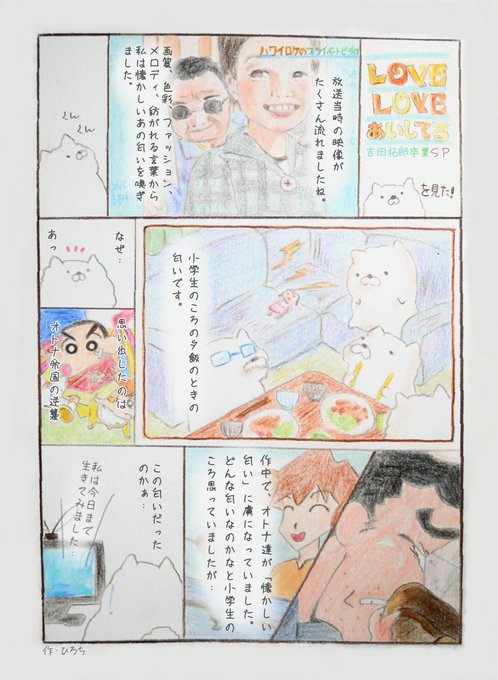 LOVE
LOVE
あいしてる
吉田拓郎卒業SP
を見た!
ハワイロケのプライベートビデオ
放送当時の映像が
たくさん流れましたね。
画質、色彩、ファッション、
メロディ、紡がれる言葉から
私は懐かしいあの匂いを嗅ぎ
ました。
くん
くん
小学生のころの夕飯のときの
匂いです。
なぜ…
あっ
思い出したのは
オトナ帝国の逆襲
作中で、オトナ達が「懐かしい
匂い」に虜になっていました。
どんな匂いなのかなと小学生の
ころ思っていましたが…
この匂いだった
のかぁ…
私は今日まで
生きてみました…
作・ひろち